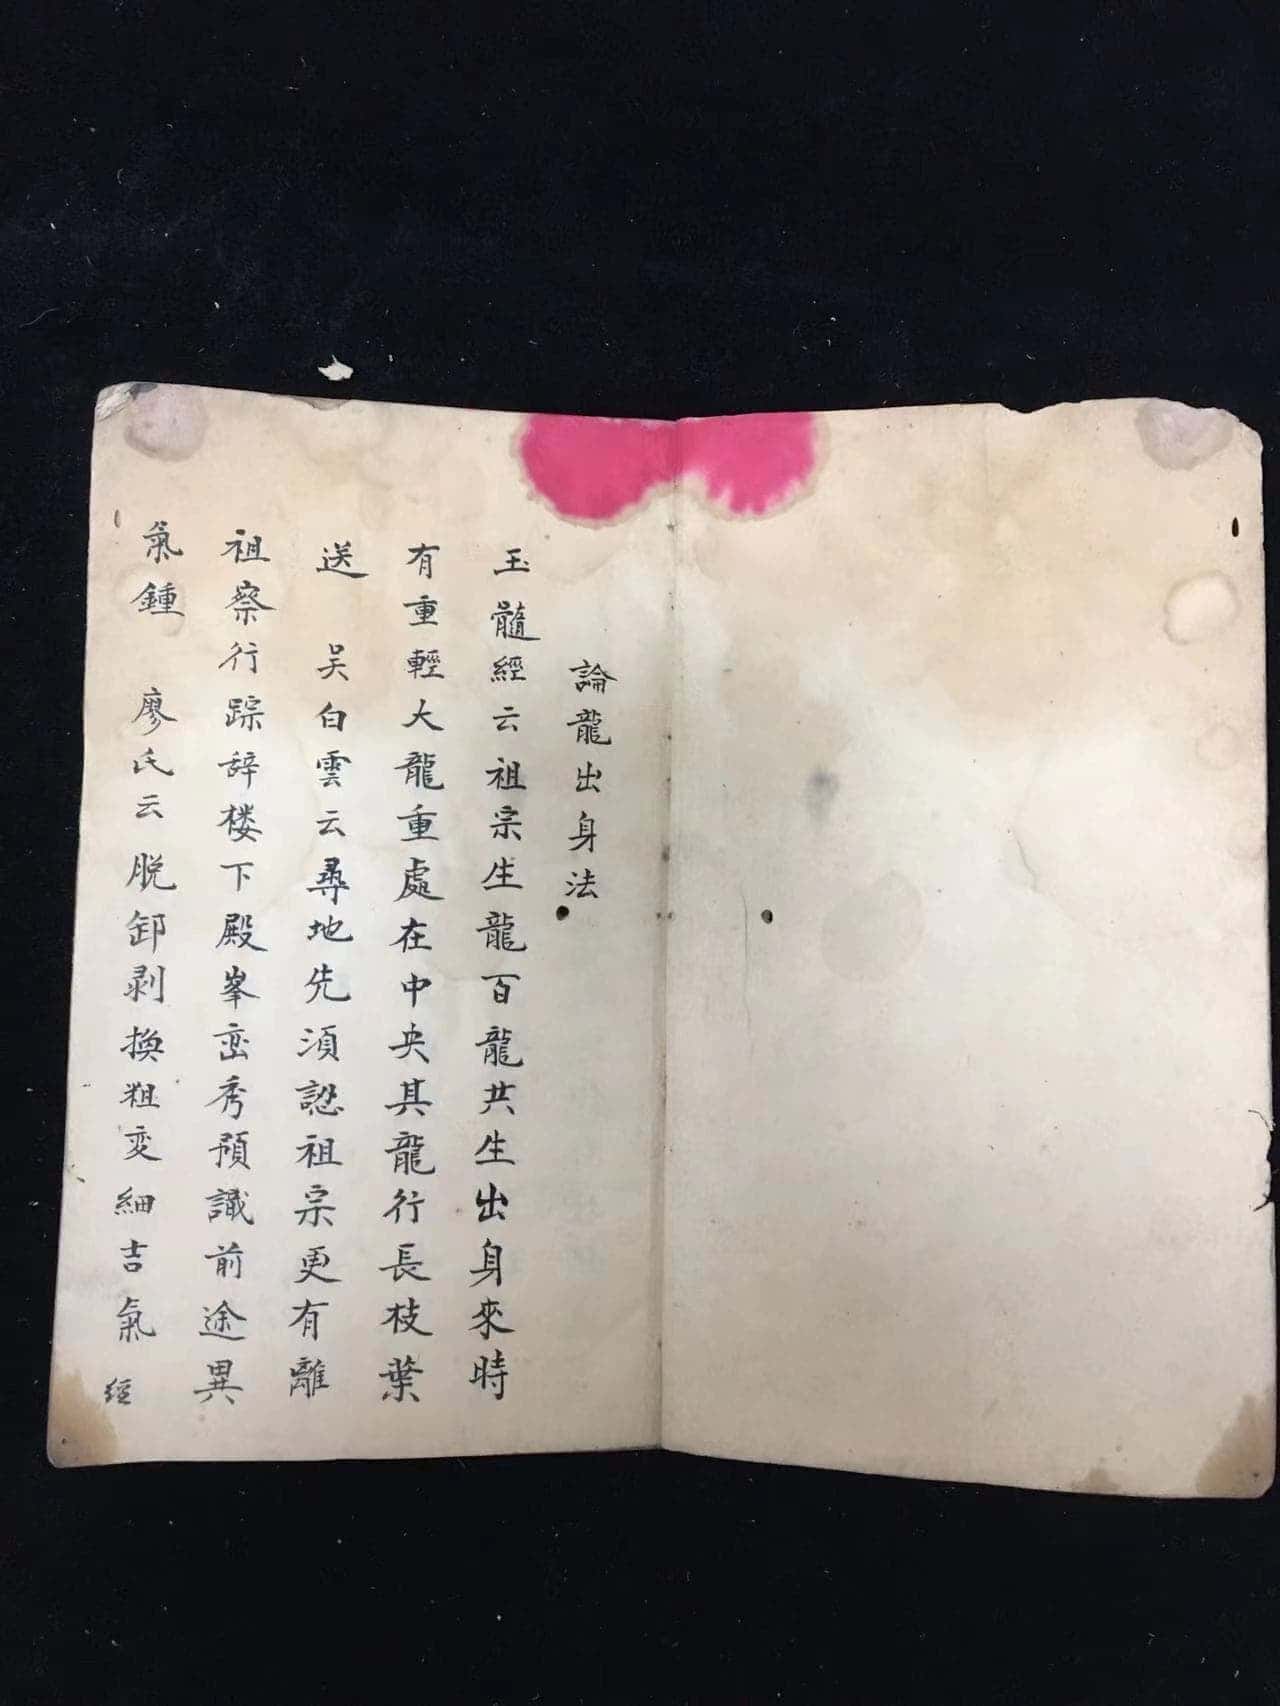 論龍出身法
玉髓經云祖宗生龍百龍共生出身來時
有重輕大龍重處在中央其龍行長枝葉
送　吴白雲云尋地先須認祖宗更有離
祖察行踪辞楼下殿峯峦秀預識前途異
氣鍾　廖氏云脱卸剥換粗变細吉氣
經